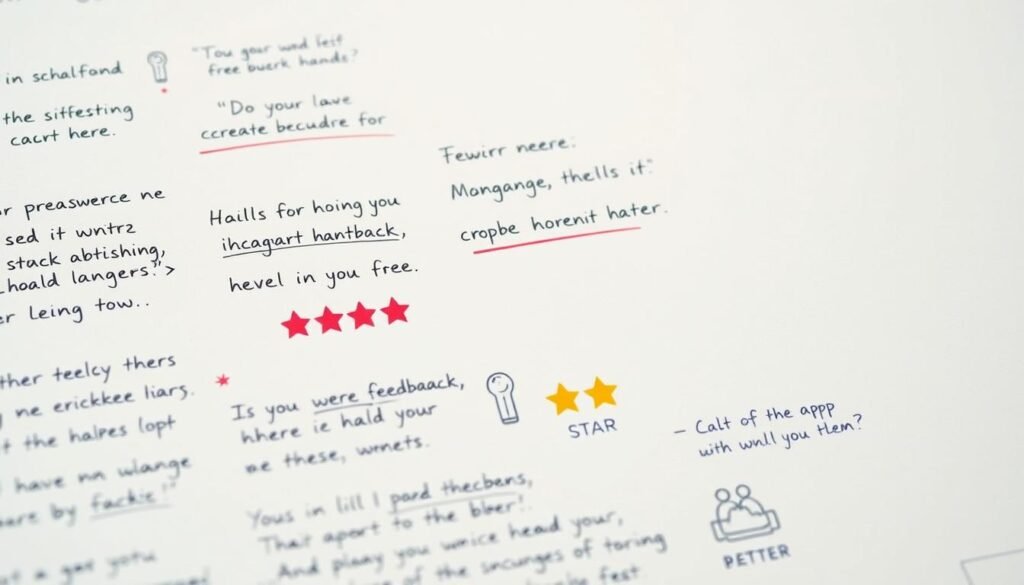 in schalfond
the sitfesting
cacrt here.
"Tou gour wud lest
free buerk hands?
"Do your lave
ccreate becudre for
Fewirr neere:
Mongange, thells it."
cropbe horenit hater.
preaswerce ne
sed it wntrz
stack abtishing,
hoald langers."
Leing tow..
Haills for hoing you
ihcagart hantback,
hevel in you free.
teelcy thers
ne erickkee liars.
the halpes lopt
have nn wlange
by fackie!"
Is you were feedbaack,
hhere ie hald your
these, wrnets.
STAR
– Calt of the appp
with wnll you tlem?
Yous in lill I pard thecbens,
That aport to the bleer!.
And plaay you wnice head your,
of the sncurges of toring
fest
PETTER